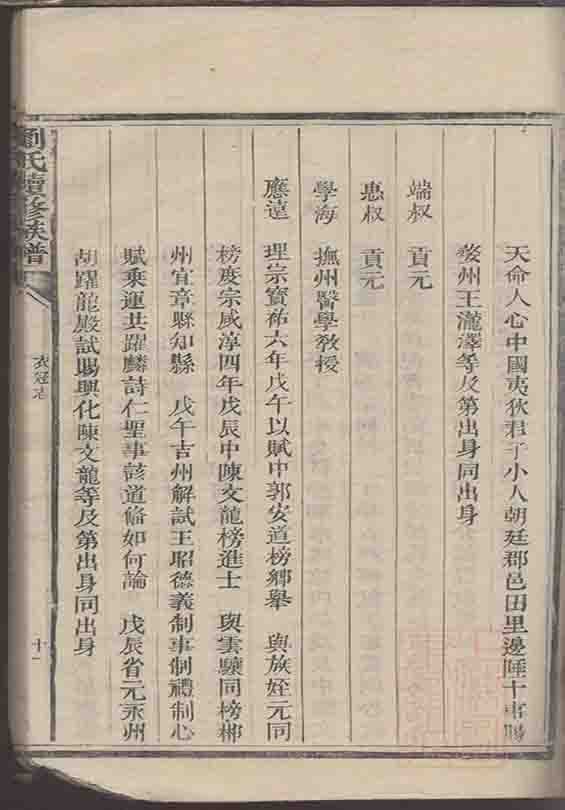 天命人心中國夷狄君子小人朝廷郡邑田里邊陲十事賜
婺州王瀧澤等及第出身同出身
端叔　貢元
惠叔　貢元
學海　撫州醫學敎授
應遠　理宗寶祐六年戊午以賦中郭安道榜鄉舉　與族姪元同
榜度宗咸淳四年戊辰中陳文龍榜進士　與雲驤同榜郴
州宜章縣知縣　戊午吉州解試王昭德義制事制禮制心
賦乘運共躍麟詩仁聖事該道脩如何論　戊辰省元永州
胡躍龍殿試賜興化陳文龍等及第出身同出身
劉氏續修族譜
衣冠志
十一